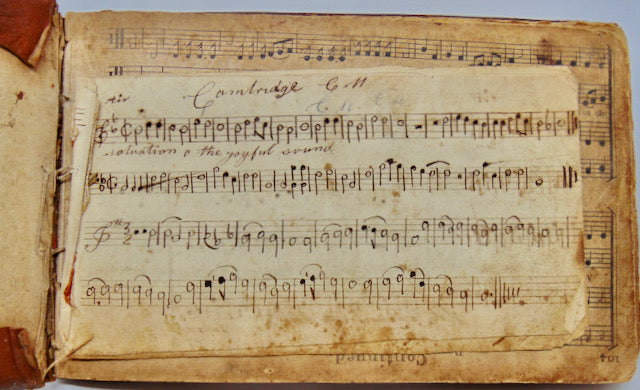 Air
Cambridge C M
salvation o the joyful sound
Continued
104